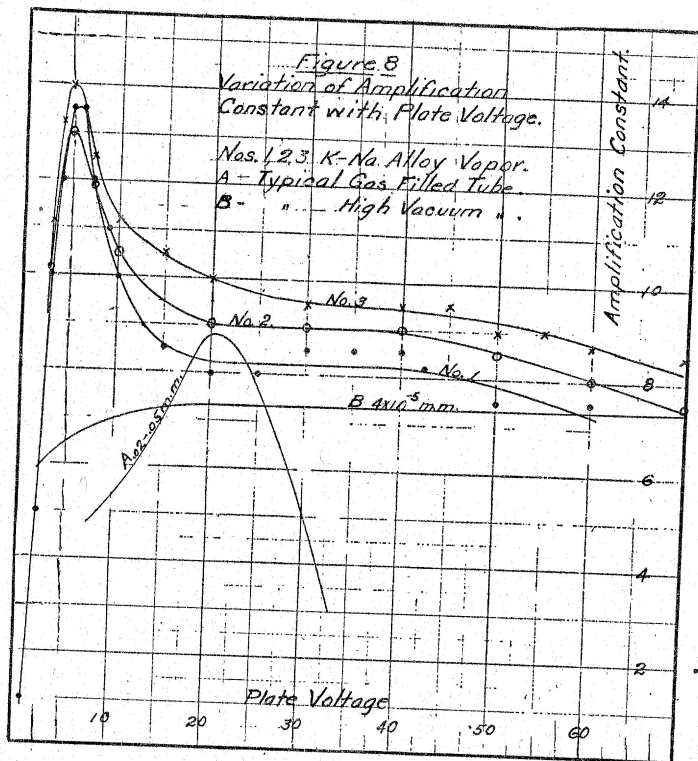 Figure 8
Variation of Amplification
Constant with Plate Voltage.
Nos. 1,2,3 K-Na Alloy Vapor.
A - Typical Gas Filled Tube.
B - " High Vacuum " .
Amplification Constant.
14
12
10
8
6
4
2
No. 3
No. 2.
No. 1
B 4x10⁻⁵ mm.
A .02-.05 m.m.
Plate Voltage
10
20
30
40
50
60